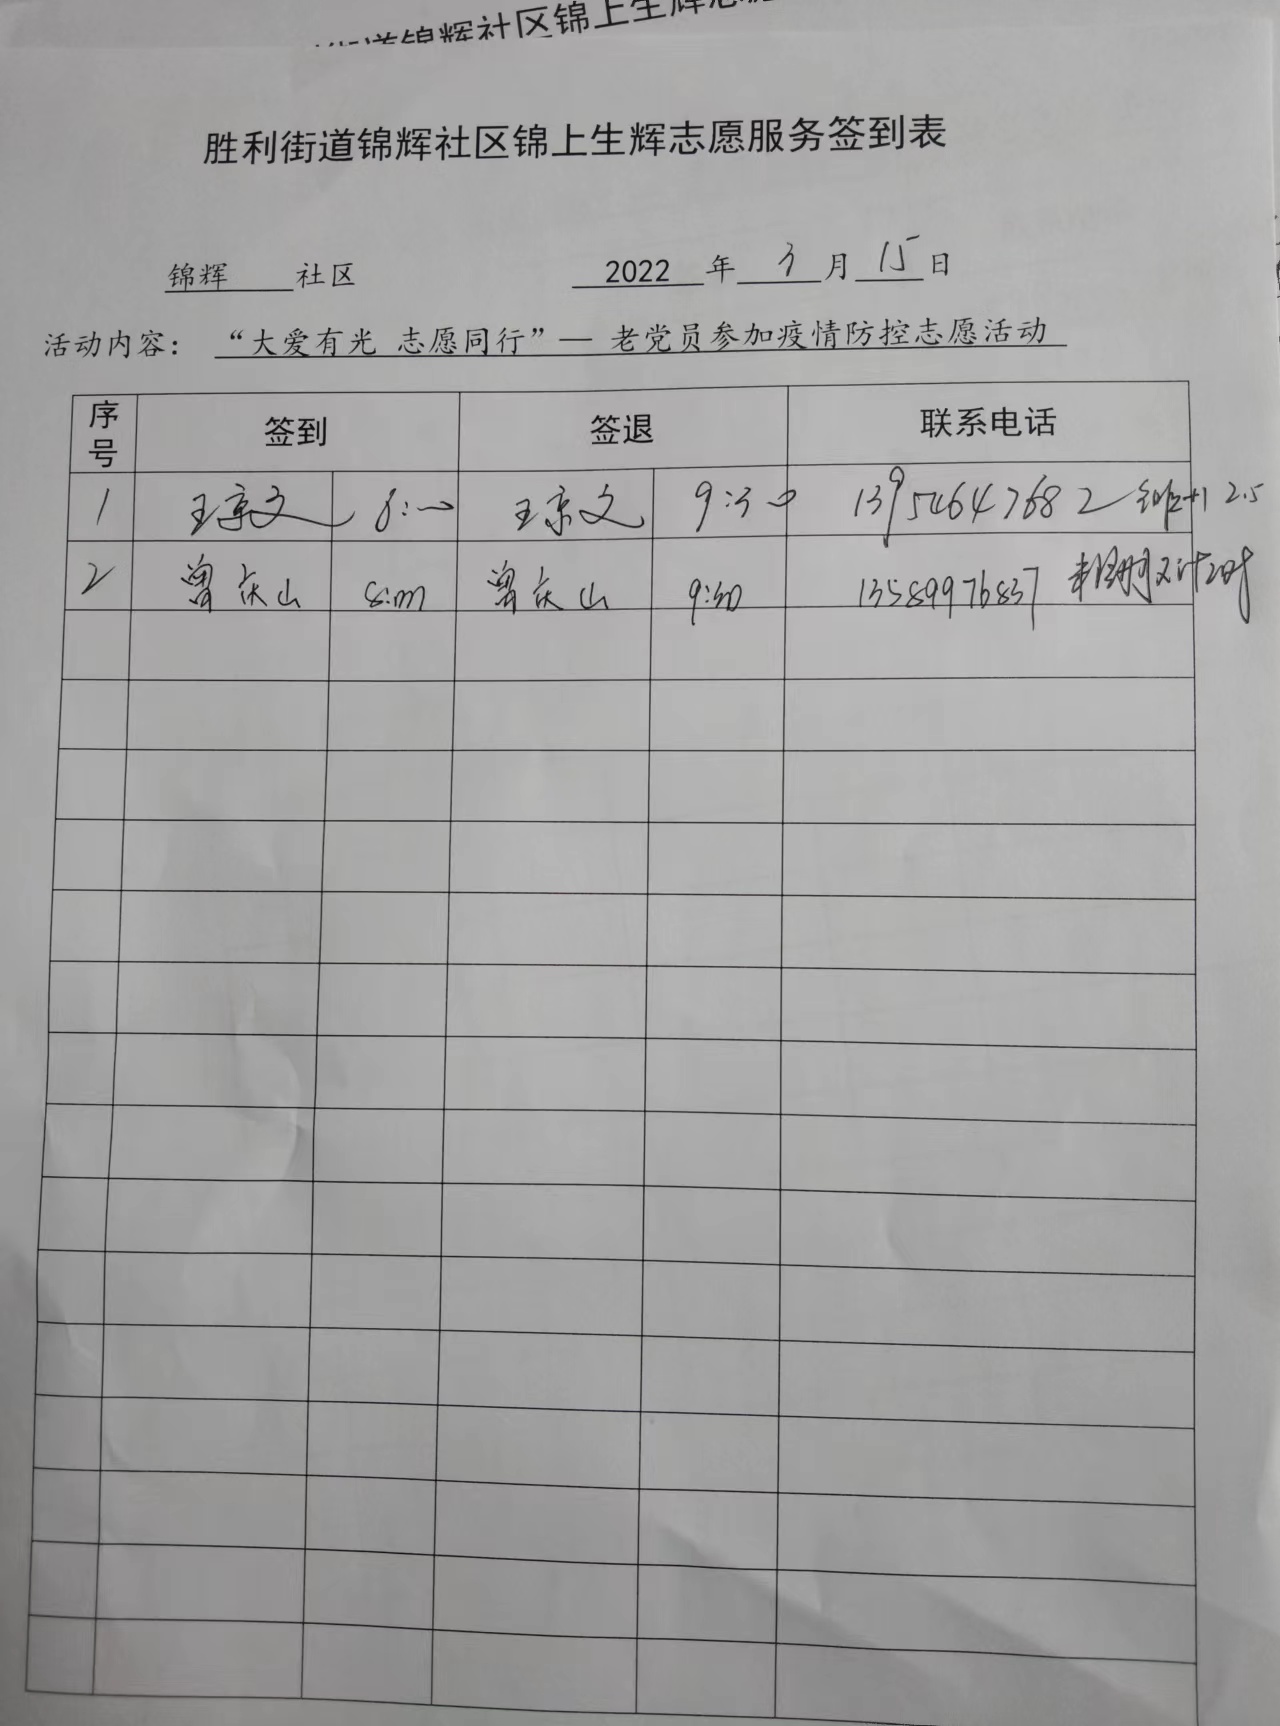 街道锦辉社区锦上生辉志愿服
胜利街道锦辉社区锦上生辉志愿服务签到表
锦辉 社区 2022 年 3 月 15 日
活动内容： “大爱有光 志愿同行”— 老党员参加疫情防控志愿活动
序号 签到 签退 联系电话
1 王京文 8:00 王京文 9:30 13954647682 2.5
2 曾庆山 8:00 曾庆山 9:30 13589976837